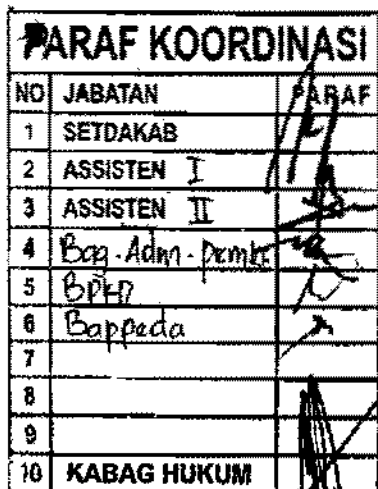 PARAF KOORDINASI
NO JABATAN PARAF
1 SETDAKAB
2 ASSISTEN I
3 ASSISTEN II
4 Bag. Adm. pemb
5 BPKD
6 Bappeda
7
8
9
10 KABAG HUKUM